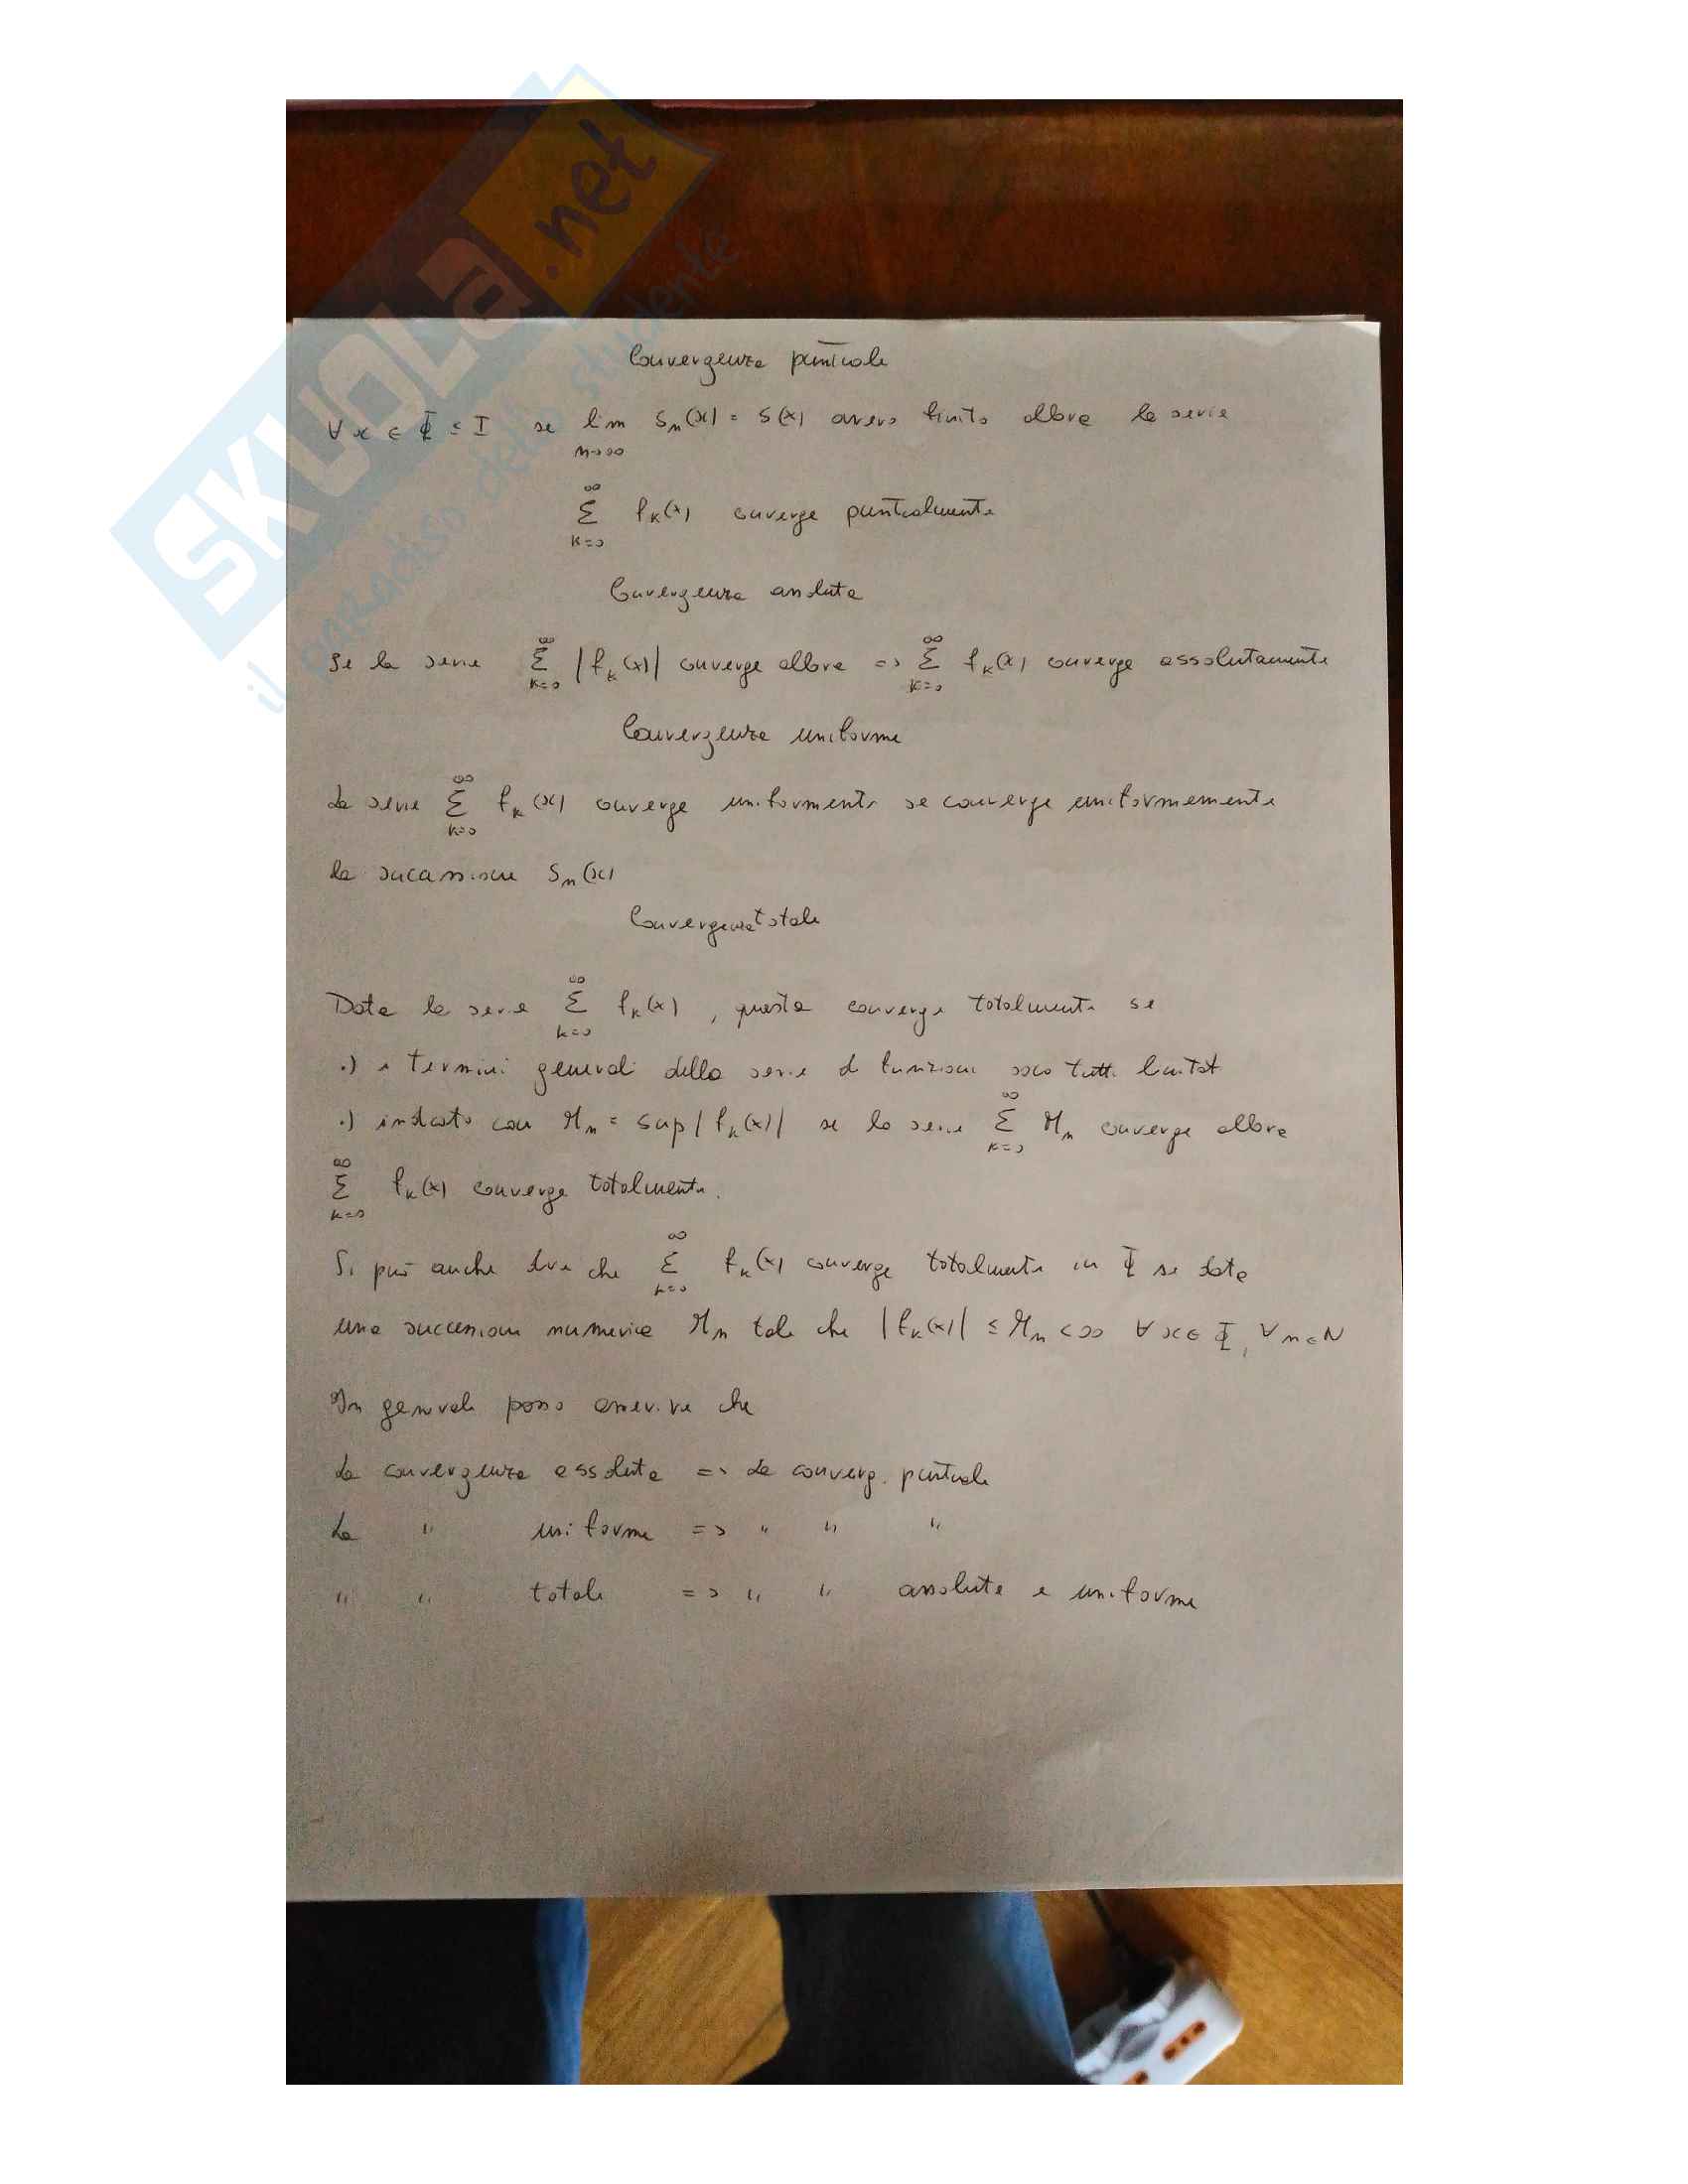 SKUOLA.net
il paradiso dello studente
Convergenza puntuale
∀ x ∈ Φ ⊆ I se lim Sn(x) = S(x) ovvero finito allora la serie
n→∞
∞
Σ fk(x) converge puntualmente
k=0
Convergenza assoluta
Se la serie ∞Σk=0 |fk(x)| converge allora => ∞Σk=0 fk(x) converge assolutamente
Convergenza uniforme
La serie ∞Σk=0 fk(x) converge uniformente se converge uniformemente
la successione Sn(x)
Convergenza totale
Data la serie ∞Σk=0 fk(x), questa converge totalmente se
.) i termini generali della serie di funzioni sono tutti limitati
.) indicato con Mn = sup|fk(x)| se la serie ∞Σk=0 Mn converge allora
∞Σk=0 fk(x) converge totalmente.
Si può anche dire che ∞Σk=0 fk(x) converge totalmente in Φ se data
una successione numerica Mn tale che |fk(x)| ≤ Mn < ∞ ∀ x ∈ Φ, ∀ n ∈ N
In generale posso asserire che
La convergenza assoluta => la converg. puntuale
La " uniforme => " " "
" " totale => " " assoluta e uniforme